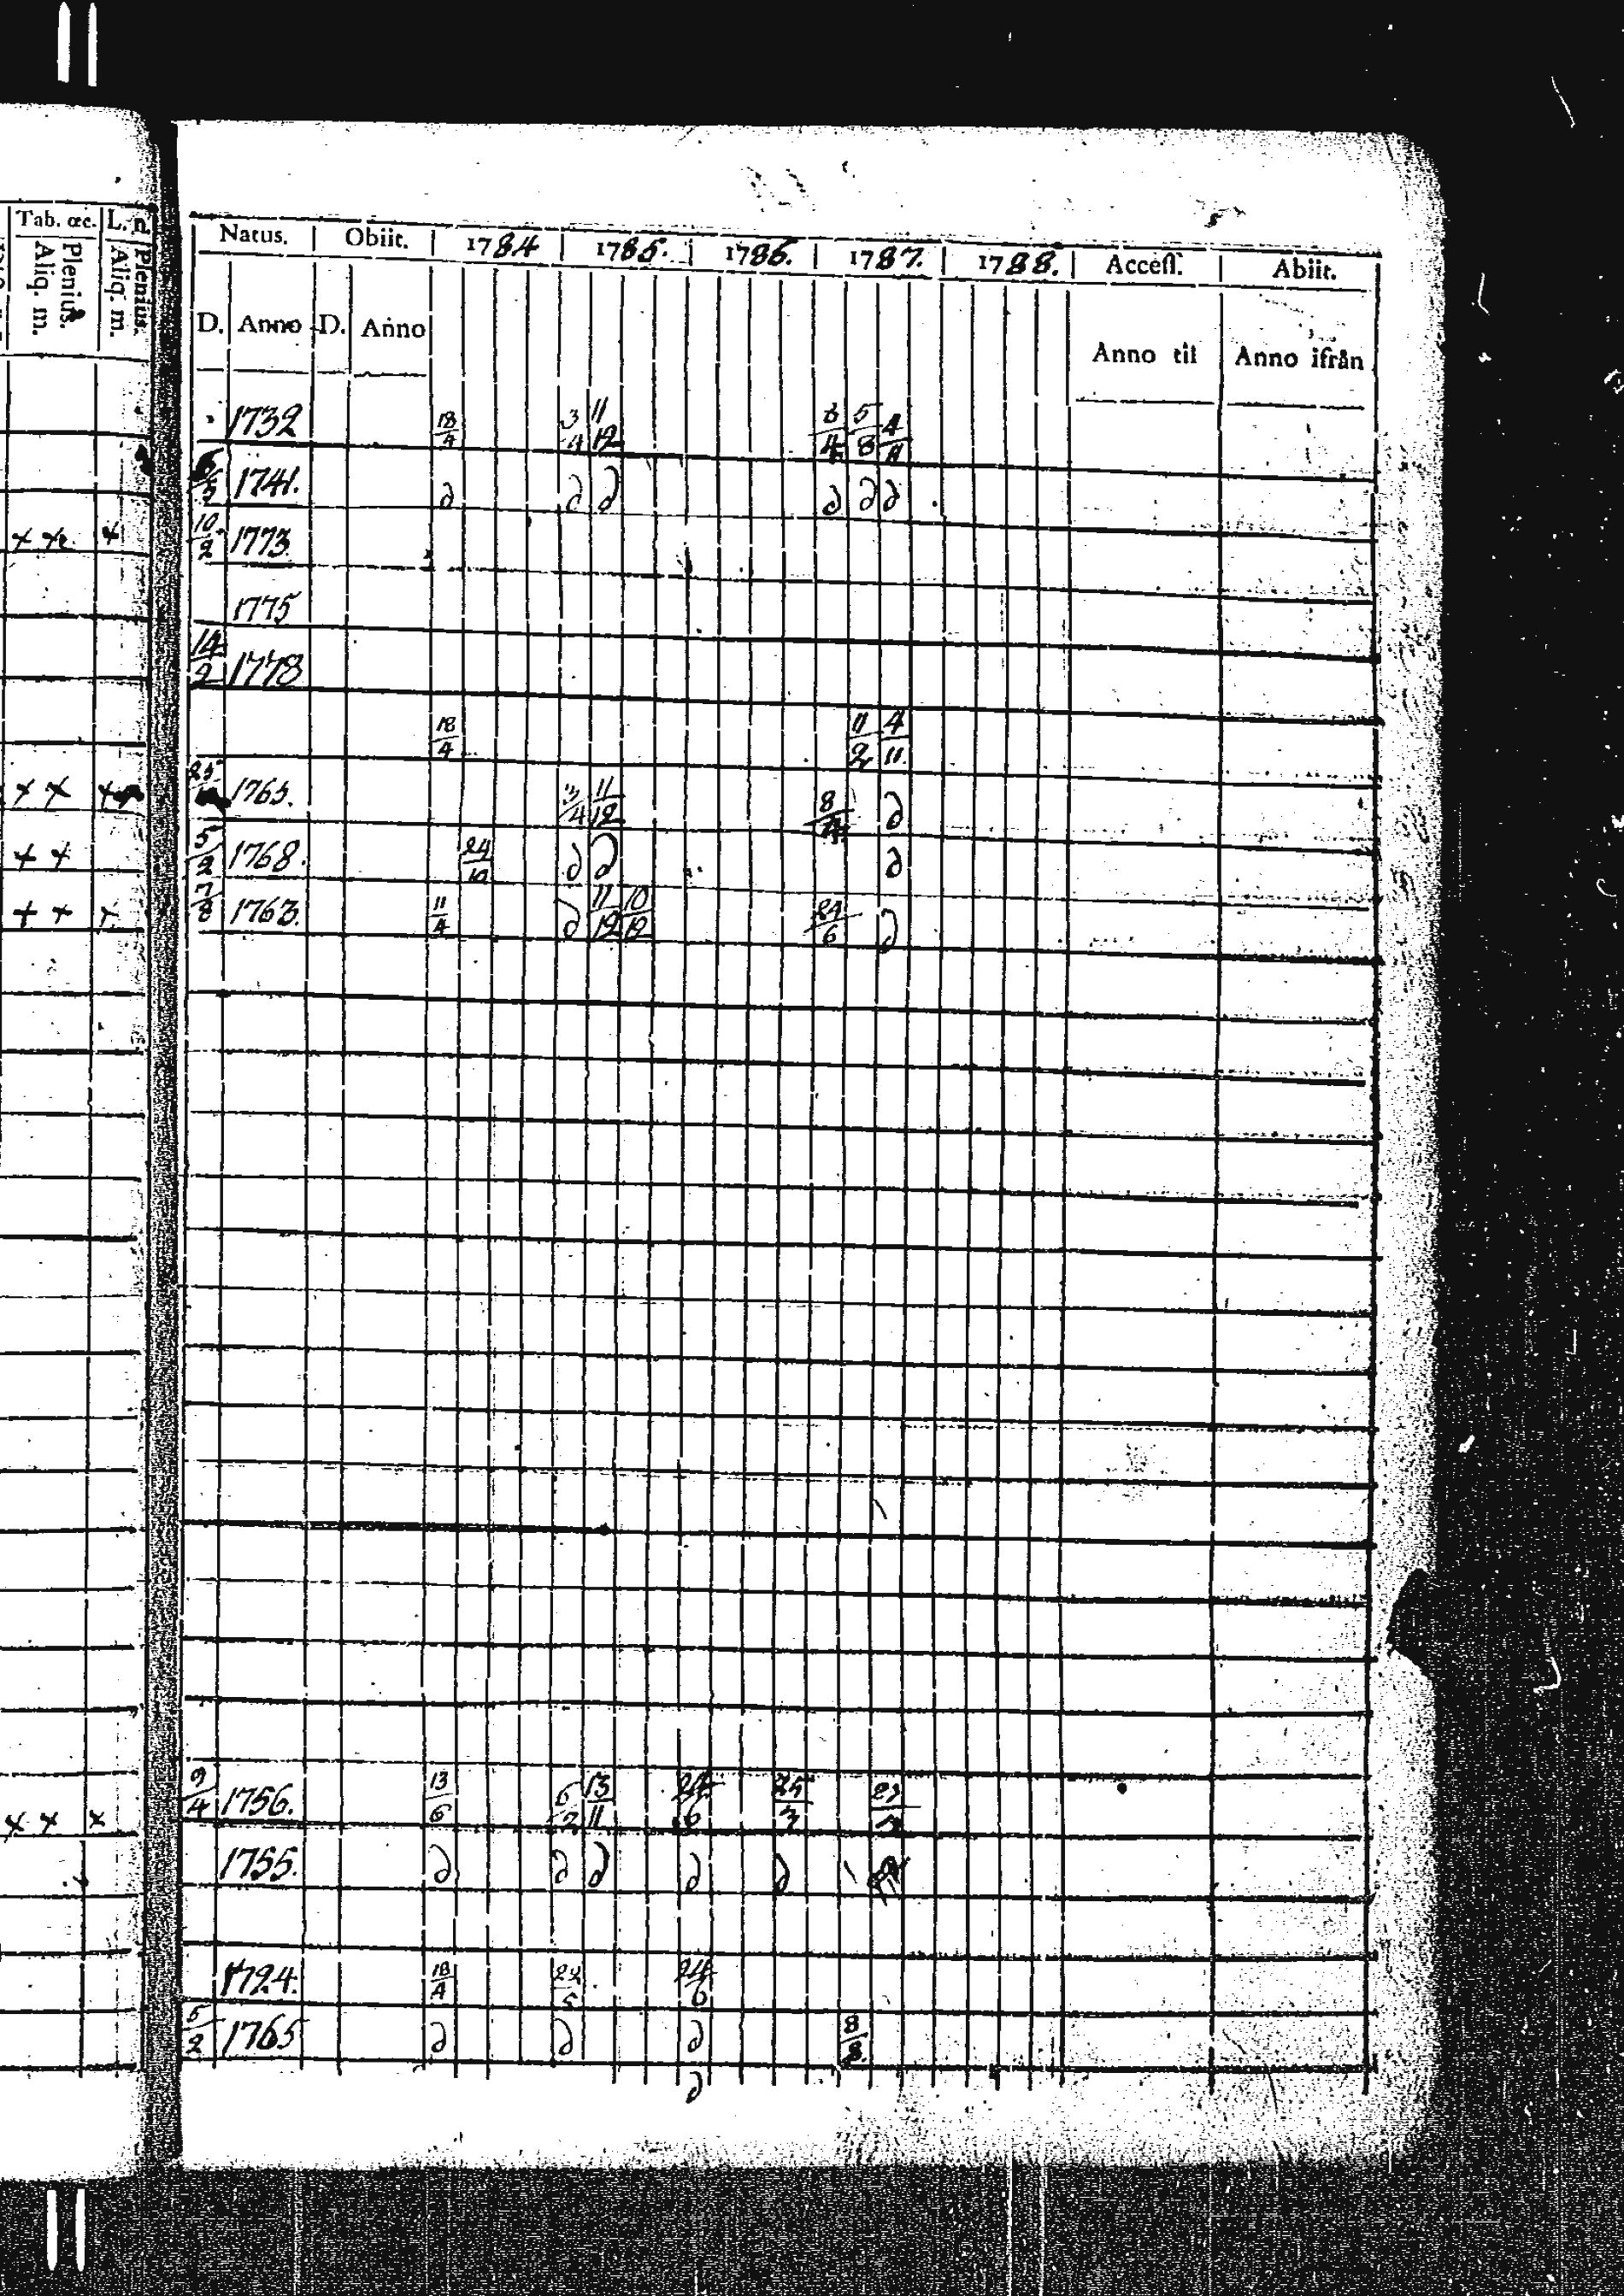 Tab. œc. L. n.
Plenius. Aliq. m. Plenius. Aliq. m.
Natus. Obiit. 1784 1785. 1786. 1787. 1788. Accesſ. Abiit.
D. Anno D. Anno Anno til Anno ifrån
1732 18/4 3/4 11/12 6/4 5/8 4/11
5 1741. d d d d d d
+ + + 10/2 1773.
1775
14/2 1778
18/4 11/2 4/11.
+ + + 25 1765. 3/4 11/12 8/4 d
+ + 5/2 1768. 24/10 d d d
+ + + 7/8 1763. 11/4 d 11/12 10/12 24/6 d
+ + + 9/4 1756. 13/6 6/2 13/11 24/6 25/3 23/3
1755. d d d d d
1724. 18/4 22/5 24/6
5/2 1765 d d d 8/8.
d